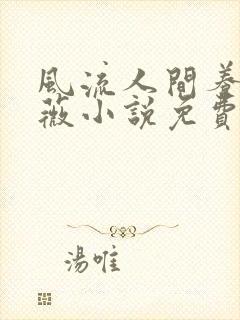 風流人間養
薇小說免費
湯唯